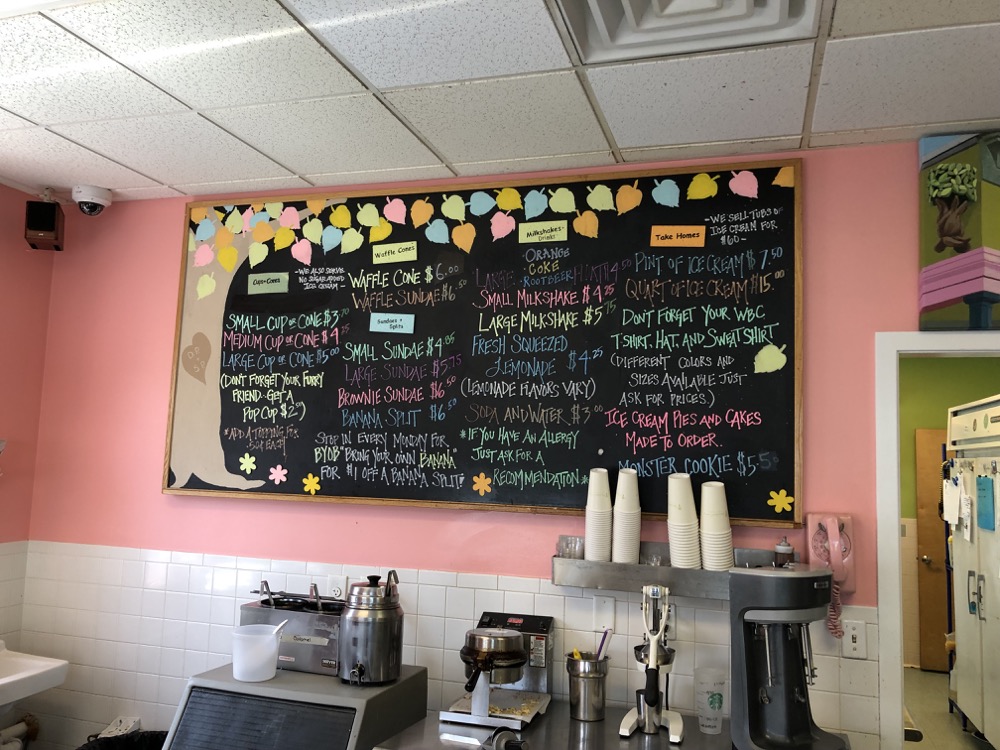 Cups+Cones
-WE ALSO SERVE
NO SUGAR ADDED
ICE CREAM-
SMALL CUP or CONE $3.
MEDIUM CUP or CONE $4.25
LARGE CUP or CONE $5.00
(DON'T FORGET YOUR FURRY
FRIEND.. GET A
PUP CUP $2
*ADD A TOPPING FOR
EACH*
Waffle Cones
WAFFLE CONE $6.00
WAFFLE SUNDAE $6.50
Sundaes +
Splits
SMALL SUNDAE $4.
LARGE SUNDAE $5.75
BROWNIE SUNDAE $6.50
BANANA SPLIT $6.50
STOP IN EVERY MONDAY FOR
BYOB "BRING YOUR OWN BANANA"
FOR $1 OFF A BANANA SPLIT!
Milkshakes-
Drinks
ORANGE
COKE
LARGE ROOTBEER FLOATH 4.50
SMALL MILKSHAKE $4.25
LARGE MILKSHAKE $5.75
FRESH SQUEEZED
LEMONADE $4.25
(LEMONADE FLAVORS VARY)
SODA AND WATER $3.00
*IF YOU HAVE AN ALLERGY
JUST ASK FOR A
RECOMMENDATION*
Take Homes
-WE SELL TUBS OF
ICE CREAM FOR
$60-
PINT OF ICE CREAM $7.50
QUART OF ICE CREAM $15.00
DON'T FORGET YOUR WBC
T SHIRT, HAT, AND SWEATSHIRT
(DIFFERENT COLORS AND
SIZES AVAILABLE JUST
ASK FOR PRICES.)
ICE CREAM PIES AND CAKES
MADE TO ORDER..
MONSTER COOKIE $5.
Caramel